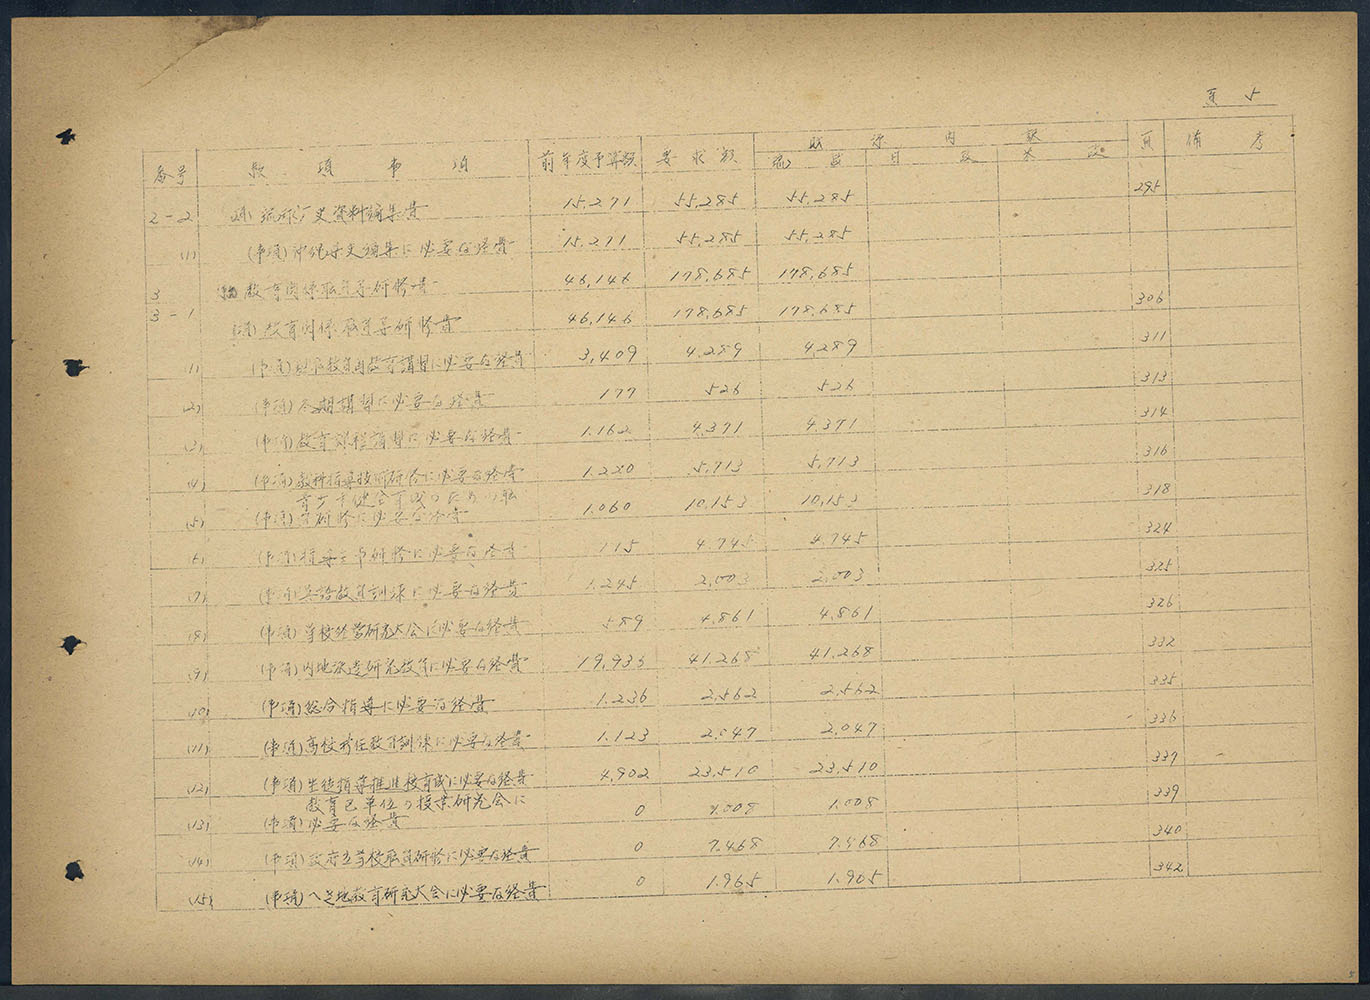 頁 5
番号 款 項 事 項 前年度予算額 要求額 財源内訳 頁 備考
琉政 日政 米政
2-2 (項) 琉球歴史資料編集費 15,271 55,285 55,285 295
(1) (事項) 沖縄県史編集に必要な経費 15,271 55,285 55,285
3 (款) 教育関係職員等研修費 46,146 178,685 178,685
3-1 (項) 教育関係職員等研修費 46,146 178,685 178,685 306
(1) (事項) 教育講習に必要な経費 3,409 4,289 4,289 311
(2) (事項) 冬期講習に必要な経費 177 526 526 313
(3) (事項) 教育課程講習に必要な経費 1,162 4,371 4,371 314
(4) (事項) 教科指導技術研修に必要な経費 1,220 5,713 5,713 316
青少年健全育成のための職
(5) (事項) 員研修に必要な経費 1,060 10,153 10,153 318
(6) (事項) 指導主事研修に必要な経費 115 4,745 4,745 324
(7) (事項) 英語教員訓練に必要な経費 1,245 2,003 2,003 325
(8) (事項) 学校経営研究大会に必要な経費 589 4,861 4,861 326
(9) (事項) 内地派遣研究教員に必要な経費 19,933 41,268 41,268 332
(10) (事項) 総合指導に必要な経費 1,236 2,562 2,562 335
(11) (事項) 高校新任教員訓練に必要な経費 1,123 2,047 2,047 336
(12) (事項) 生徒指導推進校育成に必要な経費 4,902 23,510 23,510 337
教育区単位の授業研究会に
(13) (事項) 必要な経費 0 1,008 1,008 339
(14) (事項) 政府立学校職員研修に必要な経費 0 7,468 7,468 340
(15) (事項) へき地教育研究大会に必要な経費 0 1,965 1,905 342